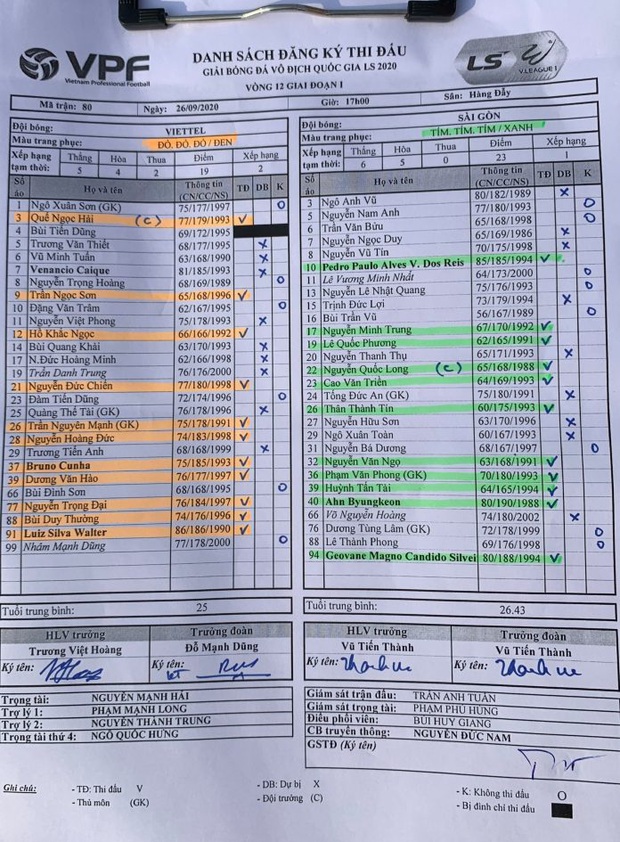 VPF
Vietnam Professional Football
DANH SÁCH ĐĂNG KÝ THI ĐẤU
GIẢI BÓNG ĐÁ VÔ ĐỊCH QUỐC GIA LS 2020
VÒNG 12 GIAI ĐOẠN I
LS
V.LEAGUE 1
Mã trận: 80 Ngày: 26/09/2020 Giờ: 17h00 Sân: Hàng Đẫy
Đội bóng: VIETTEL
Màu trang phục: ĐỎ, ĐỎ, ĐỎ / ĐEN
Xếp hạng tạm thời: Thắng Hòa Thua Điểm Xếp hạng
5 4 2 19 2
Số áo Họ và tên Thông tin (CN/CC/NS) TĐ DB K
1 Ngô Xuân Sơn (GK) 75/177/1997 O
3 Quế Ngọc Hải (C) 77/179/1993 V
4 Bùi Tiến Dũng 69/172/1995
5 Trương Văn Thiết 68/177/1995 X
6 Vũ Minh Tuấn 63/168/1990 X
7 Venancio Caique 81/185/1993 X
8 Nguyễn Trọng Hoàng 68/169/1989 O
9 Trần Ngọc Sơn 65/168/1996 V
10 Đặng Văn Trâm 62/167/1995 O
11 Nguyễn Việt Phong 75/178/1993 X
12 Hồ Khắc Ngọc 66/166/1992 V
14 Bùi Quang Khải 63/170/1993 X
17 N.Đức Hoàng Minh 62/166/1998 X
19 Trần Danh Trung 76/176/2000 X
21 Nguyễn Đức Chiến 77/180/1998 V
23 Đàm Tiến Dũng 72/174/1996 O
25 Quàng Thế Tài (GK) 76/178/1996 X
26 Trần Nguyên Mạnh (GK) 75/178/1991 V
28 Nguyễn Hoàng Đức 74/183/1998 V
29 Trương Tiến Anh 68/168/1999 X
37 Bruno Cunha 75/185/1993 V
39 Dương Văn Hào 76/177/1997 V
66 Bùi Đình Sơn 68/168/1995 O
77 Nguyễn Trọng Đại 76/184/1997 V
88 Bùi Duy Thường 74/176/1996 V
91 Luiz Silva Walter 86/186/1990 V
99 Nhâm Mạnh Dũng 77/178/2000 O
Tuổi trung bình: 25
HLV trưởng Trưởng đoàn
Trương Việt Hoàng Đỗ Mạnh Dũng
Ký tên: Ký tên:
Trọng tài: NGUYỄN MẠNH HẢI
Trợ lý 1: PHẠM MẠNH LONG
Trợ lý 2: NGUYỄN THÀNH TRUNG
Trọng tài thứ 4: NGÔ QUỐC HƯNG
Đội bóng: SÀI GÒN
Màu trang phục: TÍM, TÍM, TÍM / XANH
Xếp hạng tạm thời: Thắng Hòa Thua Điểm Xếp hạng
6 5 0 23 1
Số áo Họ và tên Thông tin (CN/CC/NS) TĐ DB K
3 Ngô Anh Vũ 80/182/1989 X
5 Nguyễn Nam Anh 77/180/1993 O
6 Trần Văn Bửu 65/168/1998 O
7 Nguyễn Ngọc Duy 65/169/1986 X
8 Nguyễn Vũ Tín 70/175/1998 X
10 Pedro Paulo Alves V. Dos Reis 85/185/1994 V
11 Lê Vương Minh Nhất 64/173/2000 O
13 Nguyễn Lê Nhật Quang 75/176/1993 O
15 Trịnh Đức Lợi 73/179/1994 X
16 Bùi Trần Vũ 56/167/1989 O
17 Nguyễn Minh Trung 67/170/1992 V
19 Lê Quốc Phương 62/165/1991 V
20 Nguyễn Thanh Thụ 65/171/1993 X
22 Nguyễn Quốc Long (C) 65/168/1988 V
23 Cao Văn Triền 64/169/1993 V
24 Tống Đức An (GK) 75/180/1991 X
26 Thân Thành Tín 60/175/1993 V
27 Nguyễn Hữu Sơn 63/170/1996 X
29 Ngô Xuân Toàn 60/167/1993 X
31 Nguyễn Bá Dương 68/167/1997 O
32 Nguyễn Văn Ngọ 63/168/1991 V
36 Phạm Văn Phong (GK) 70/180/1993 V
39 Huỳnh Tấn Tài 64/165/1994 V
40 Ahn Byungkeon 80/190/1988 V
66 Võ Nguyên Hoàng 74/180/2002 X
76 Dương Tùng Lâm (GK) 72/178/1999 O
88 Lê Thành Phong 69/176/1998 O
94 Geovane Magno Candido Silvei 80/188/1994 V
Tuổi trung bình: 26.43
HLV trưởng Trưởng đoàn
Vũ Tiến Thành Vũ Tiến Thành
Ký tên: Ký tên:
Giám sát trận đấu: TRẦN ANH TUẤN
Giám sát trọng tài: PHẠM PHÚ HÙNG
Điều phối viên: BÙI HUY GIANG
CB truyền thông: NGUYỄN ĐỨC NAM
GSTĐ (Ký tên)
Ghi chú: - TĐ: Thi đấu V - DB: Dự bị X - K: Không thi đấu O
- Thủ môn (GK) - Đội trưởng (C) - Bị đình chỉ thi đấu